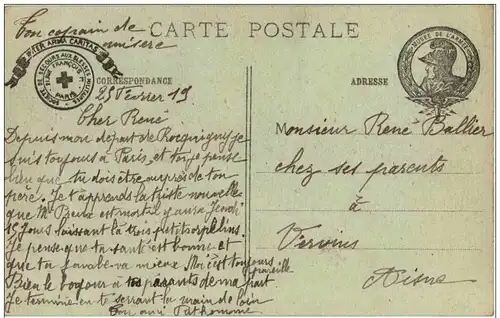 Ton copain de
misère
CARTE POSTALE
INTER ARMA CARITAS
SOCIÉTÉ DE SECOURS AUX BLESSÉS MILITAIRES
PARIS
MUSÉE DE L'ARMÉE
CORRESPONDANCE
ADRESSE
25 Février 19
Cher René
Depuis mon départ de Rocquigny je
suis toujours à Paris, et toi je pense
bien que tu dois être auprès de ton
père. Je t'apprends la triste nouvelle
que Mr est mort il y aura Jeudi
15 Jours laissant là trois petits orphelins
Je pense que ta santé est bonne et
que ta va mieux Moi c'est toujours
pareille
Bien le bonjour à tes parents de ma part
Je termine en te serrant la main de loin
Ton ami
Monsieur René Ballier
chez ses parents
à
Vervins
Aisne